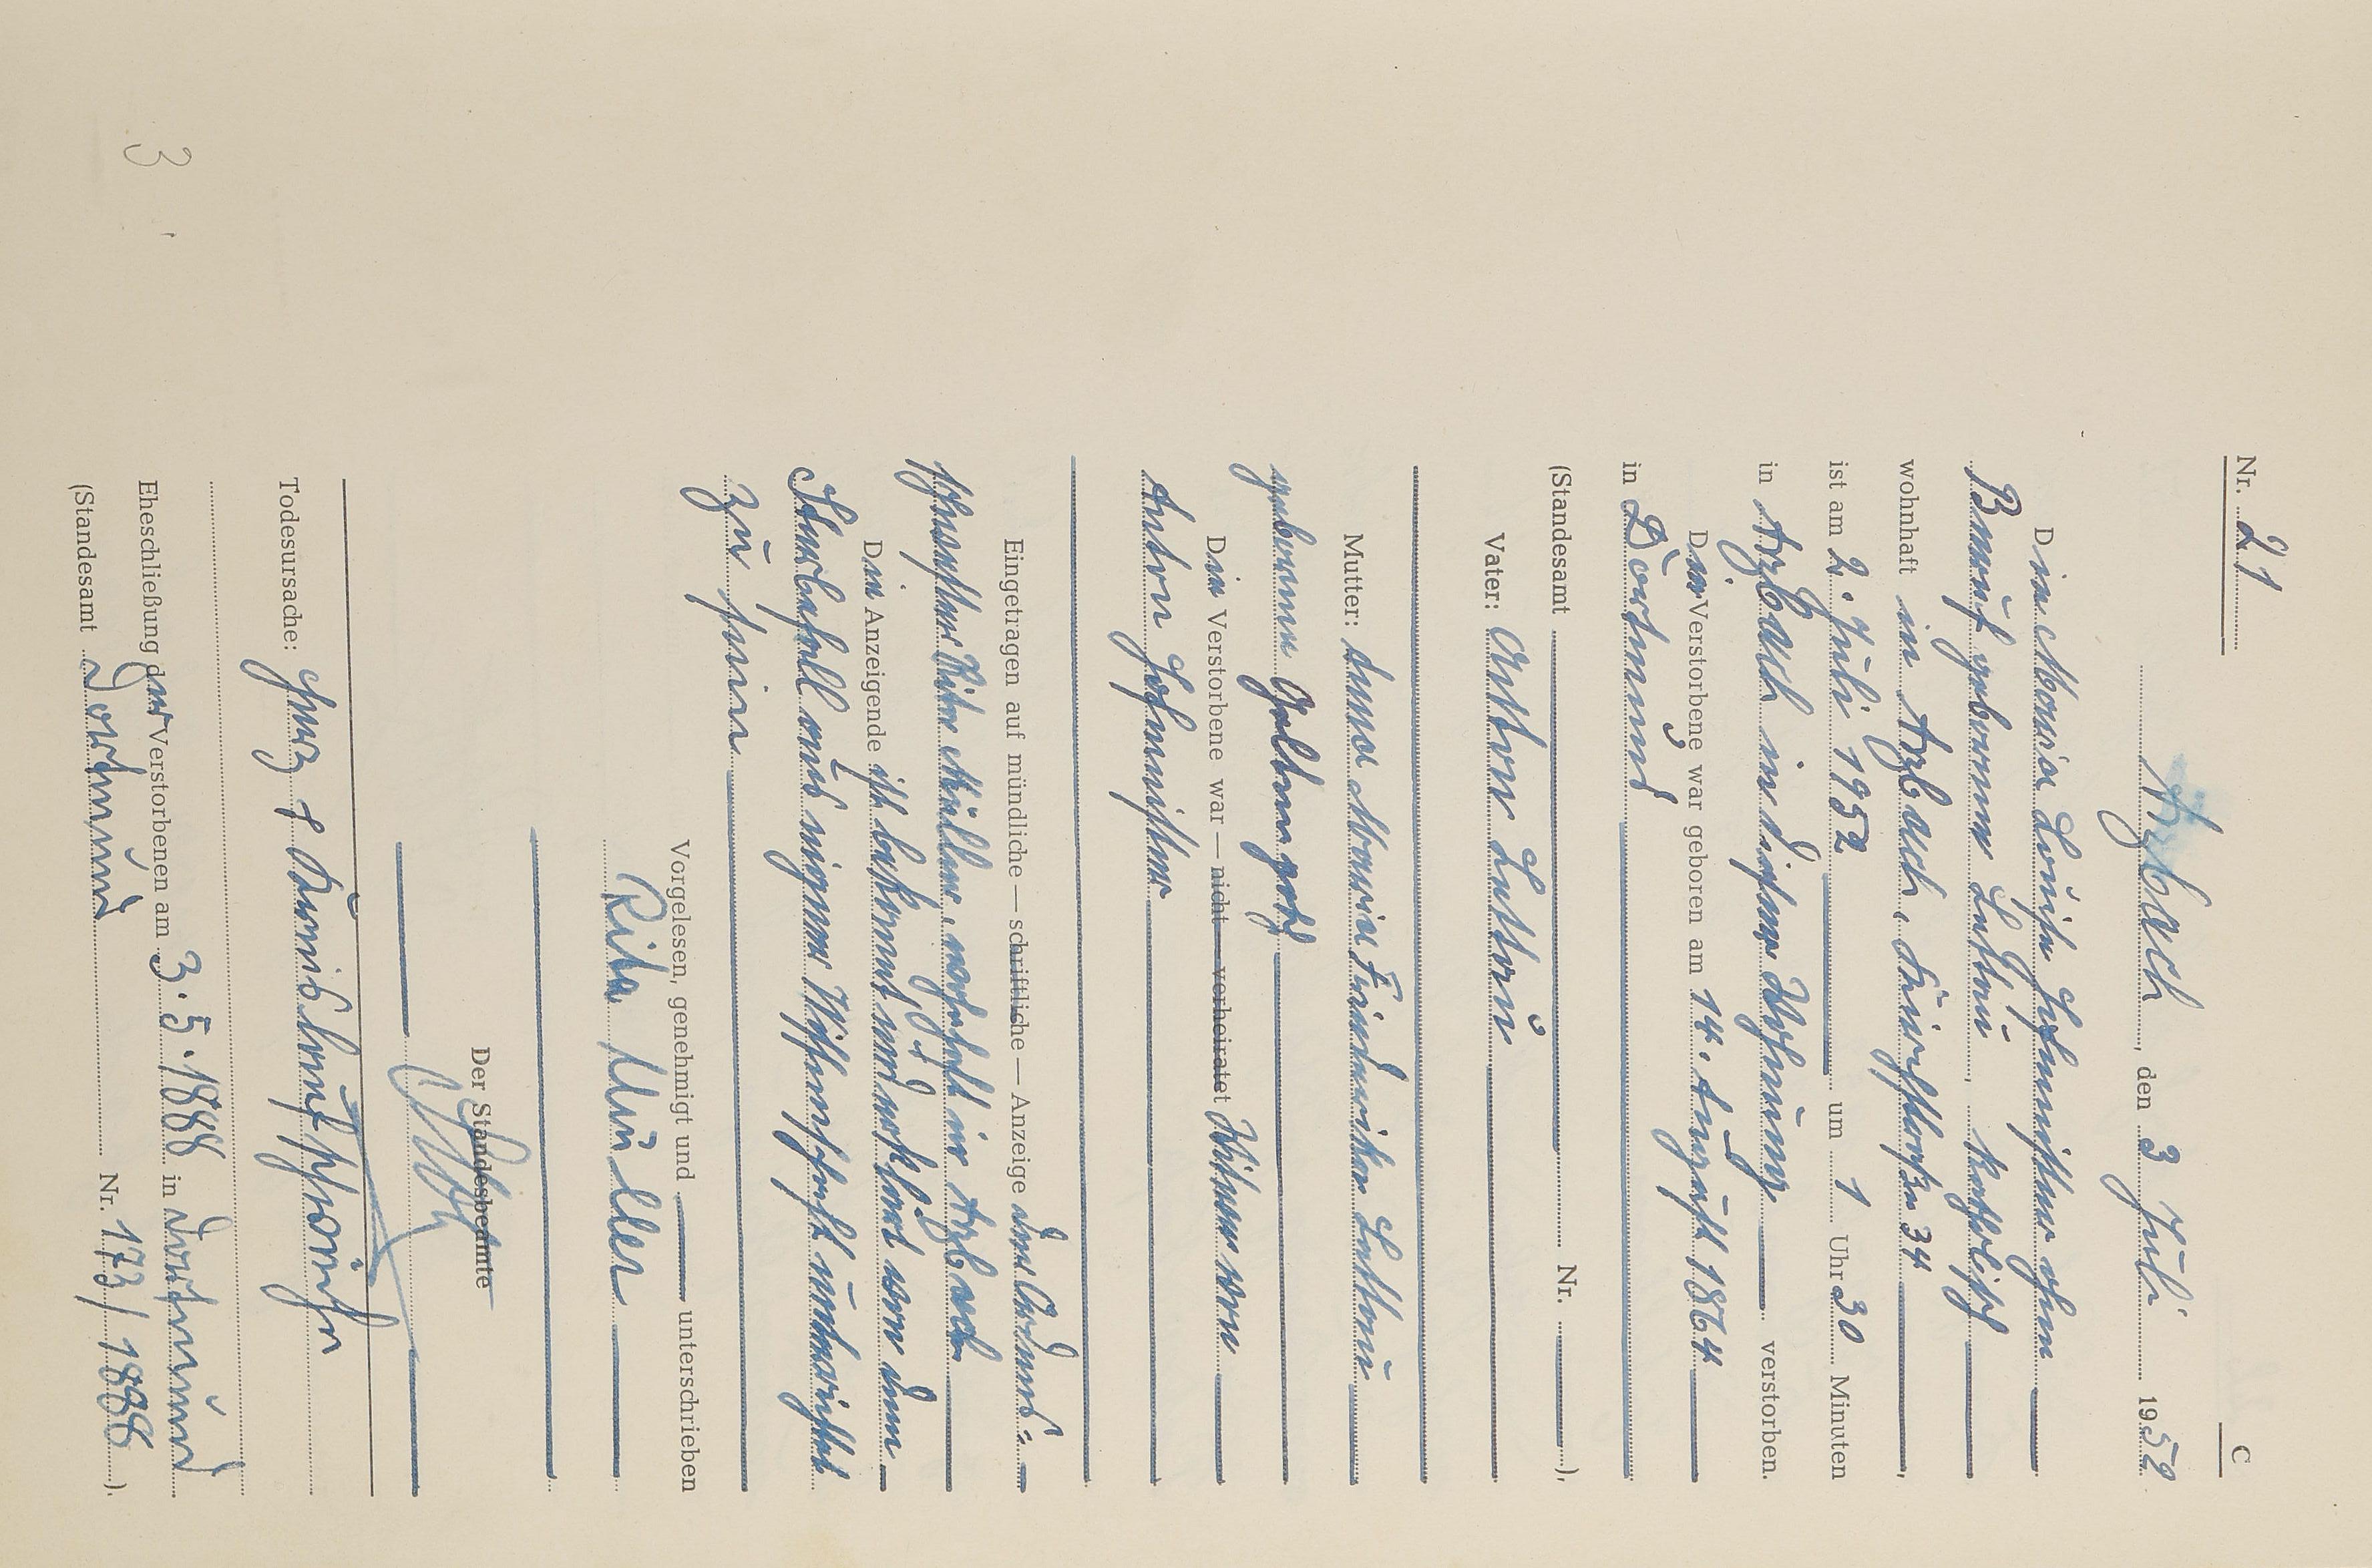 C
Nr. 21
Arzbach, den 3 Juli 1952
Die Maria Louise Hofmeister ohne
Beruf geborene Lattoni, katholisch
wohnhaft in Arzbach, Kirchstraße 34,
ist am 2. Juli 1952 um 1 Uhr 30 Minuten
in Arzbach in dieser Wohnung verstorben.
Der Verstorbene war geboren am 14. August 1864
in Dortmund
(Standesamt Nr. ),
Vater: Anton Lattoni
Mutter: Anna Maria Friederika Lattoni
geborene
Die Verstorbene war — nicht — verheiratet Witwe von
Anton Hofmeister
Eingetragen auf mündliche — schriftliche — Anzeige der Ordens-
schwester Rita Müller, wohnhaft in Arzbach
Die Anzeigende ist bekannt und erklärt von dem
Sterbefall aus eigener Wissenschaft unterrichtet
zu sein
Vorgelesen, genehmigt und unterschrieben
Rita Müller
Der Standesbeamte
Todesursache: Herz & Kreislaufschwäche
Eheschließung der Verstorbenen am 3.5.1888 in Dortmund
(Standesamt Dortmund Nr. 173/1888).
3